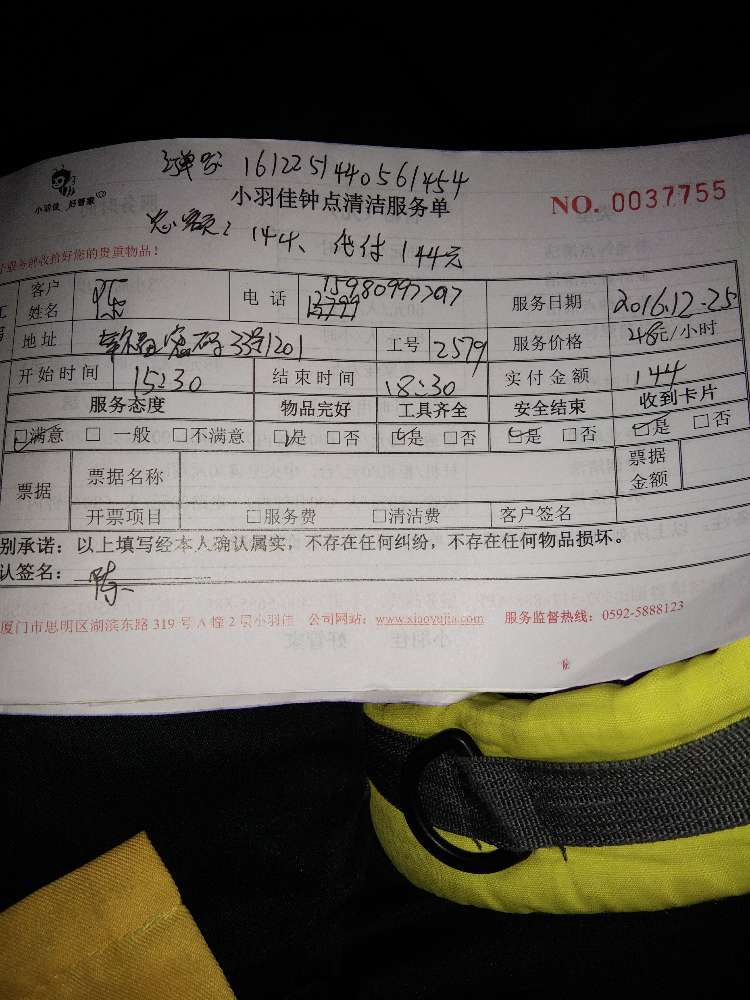 订单号 1612251440561454
小羽佳 好管家
小羽佳钟点清洁服务单
NO. 0037755
总额：144、 代付144元
收拾好您的贵重物品！
客户姓名 陈 电话 15980997797 服务日期 2016.12.25
地址 幸福密码3号1201 工号 2579 服务价格 48元/小时
开始时间 15:30 结束时间 18:30 实付金额 144
服务态度 物品完好 工具齐全 安全结束 收到卡片
☑满意 □一般 □不满意 ☑是 □否 ☑是 □否 ☑是 □否 ☑是 □否
票据 票据名称 票据金额
开票项目 □服务费 □清洁费 客户签名
别承诺：以上填写经本人确认属实，不存在任何纠纷，不存在任何物品损坏。
认签名： 陈
厦门市思明区湖滨东路319号A幢2层小羽佳 公司网站：www.xiaoyujia.com 服务监督热线：0592-5888123